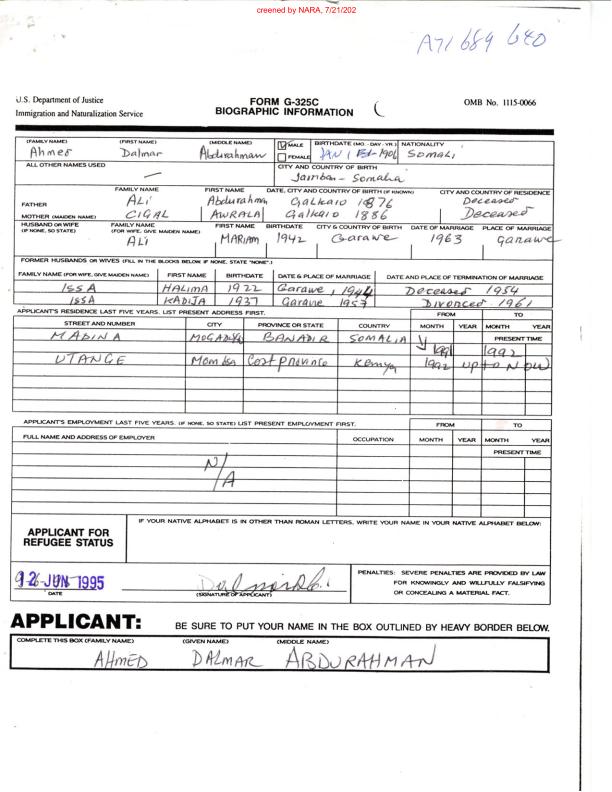 creened by NARA, 7/21/202
A71 689 640
U.S. Department of Justice
Immigration and Naturalization Service
FORM G-325C
BIOGRAPHIC INFORMATION
OMB No. 1115-0066
(FAMILY NAME) (FIRST NAME) (MIDDLE NAME) MALE FEMALE BIRTHDATE (MO.-DAY-YR.) NATIONALITY
Ahmed Dalmar Abdurahman JAN 1 1906 Somali
ALL OTHER NAMES USED CITY AND COUNTRY OF BIRTH
— Jamban - Somalia
FAMILY NAME FIRST NAME DATE, CITY AND COUNTRY OF BIRTH (IF KNOWN) CITY AND COUNTRY OF RESIDENCE
FATHER ALI Abdurahman Galkaio 1876 Deceased
MOTHER (MAIDEN NAME) CIGAL AWRALA Galkaio 1886 Deceased
HUSBAND OR WIFE (IF NONE, SO STATE) FAMILY NAME (FOR WIFE, GIVE MAIDEN NAME) FIRST NAME BIRTHDATE CITY & COUNTRY OF BIRTH DATE OF MARRIAGE PLACE OF MARRIAGE
ALI MARIAM 1942 Garawe 1963 garawe
FORMER HUSBANDS OR WIVES (FILL IN THE BLOCKS BELOW. IF NONE, STATE "NONE".)
FAMILY NAME (FOR WIFE, GIVE MAIDEN NAME) FIRST NAME BIRTHDATE DATE & PLACE OF MARRIAGE DATE AND PLACE OF TERMINATION OF MARRIAGE
ISSA HALIMA 1922 Garawe, 1944 Deceased 1954
ISSA KADIJA 1937 Garawe 1957 Divorced 1961
APPLICANT'S RESIDENCE LAST FIVE YEARS. LIST PRESENT ADDRESS FIRST. FROM TO
STREET AND NUMBER CITY PROVINCE OR STATE COUNTRY MONTH YEAR MONTH YEAR
PRESENT TIME
MADINA BANADIR SOMALIA 1991 1992
UTANGE Mombsa Cost province Kenya 1992 up to NOW
APPLICANT'S EMPLOYMENT LAST FIVE YEARS. (IF NONE, SO STATE) LIST PRESENT EMPLOYMENT FIRST. FROM TO
FULL NAME AND ADDRESS OF EMPLOYER OCCUPATION MONTH YEAR MONTH YEAR
PRESENT TIME
N/A
IF YOUR NATIVE ALPHABET IS IN OTHER THAN ROMAN LETTERS, WRITE YOUR NAME IN YOUR NATIVE ALPHABET BELOW:
APPLICANT FOR
REFUGEE STATUS
26 JUN 1995
DATE
(SIGNATURE OF APPLICANT)
PENALTIES: SEVERE PENALTIES ARE PROVIDED BY LAW
FOR KNOWINGLY AND WILLFULLY FALSIFYING
OR CONCEALING A MATERIAL FACT.
APPLICANT: BE SURE TO PUT YOUR NAME IN THE BOX OUTLINED BY HEAVY BORDER BELOW.
COMPLETE THIS BOX (FAMILY NAME) (GIVEN NAME) (MIDDLE NAME)
AHMED DALMAR ABDURAHMAN